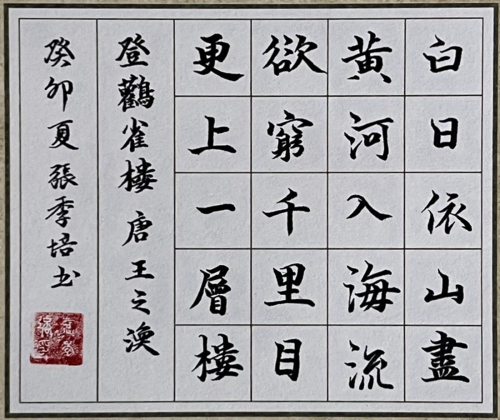 白日依山盡
黄河入海流
欲窮千里目
更上一層樓
登鸛雀樓 唐 王之渙
癸卯夏 張季培书